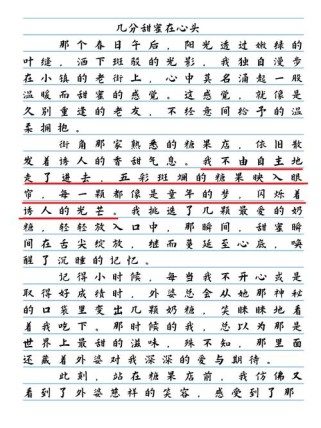 几分甜蜜在心头
那个春日午后，阳光透过嫩绿的
叶缝，洒下斑驳的光影，我独自漫步
在小镇的老街上，心中莫名涌起一股
温暖而甜蜜的感觉。这感觉，就像是
久别重逢的老友，不经意间给予的温
柔拥抱。
街角那家熟悉的糖果店，依旧散
发着诱人的香甜气息。我不由自主地
走了进去，五彩斑斓的糖果映入眼
帘，每一颗都像是童年的梦，闪烁着
诱人的光芒。我挑选了几颗最爱的奶
糖，轻轻放入口中，那瞬间，甜蜜瞬
间在舌尖绽放，继而蔓延至心底，唤
醒了沉睡的记忆。
记得小时候，每当我不开心或是
取得好成绩时，外婆总会从她那神秘
的口袋里变出几颗奶糖，笑眯眯地看
着我吃下。那时候的我，总以为那是
世界上最甜的滋味，殊不知，那里面
还藏着外婆对我深深的爱与期待。
此刻，站在糖果店前，我仿佛又
看到了外婆慈祥的笑容，感受到了那